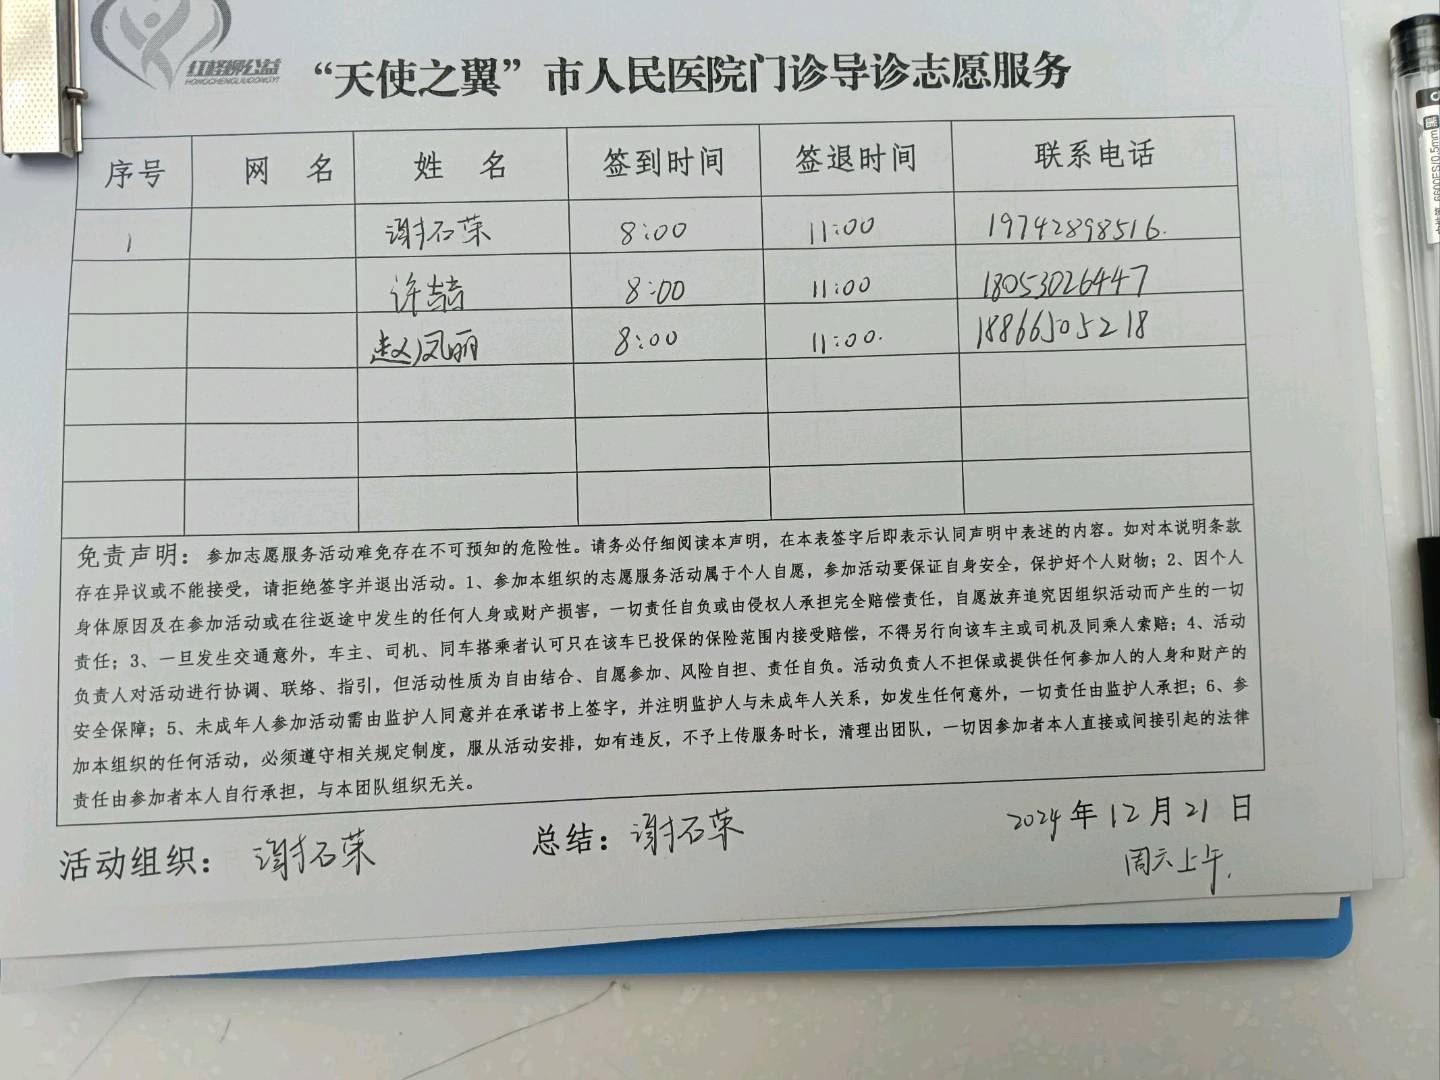 红柽柳公益
HONGCHENGLIUGONGYI
“天使之翼”市人民医院门诊导诊志愿服务
序号 网 名 姓 名 签到时间 签退时间 联系电话
1 谢石荣 8:00 11:00 19742898516.
许喆 8:00 11:00 18053026447
赵凤丽 8:00 11:00. 18866505218
免责声明：参加志愿服务活动难免存在不可预知的危险性。请务必仔细阅读本声明，在本表签字后即表示认同声明中表述的内容。如对本说明条款
存在异议或不能接受，请拒绝签字并退出活动。1、参加本组织的志愿服务活动属于个人自愿，参加活动要保证自身安全，保护好个人财物；2、因个人
身体原因及在参加活动或在往返途中发生的任何人身或财产损害，一切责任自负或由侵权人承担完全赔偿责任，自愿放弃追究因组织活动而产生的一切
责任；3、一旦发生交通意外，车主、司机、同车搭乘者认可只在该车已投保的保险范围内接受赔偿，不得另行向该车主或司机及同乘人索赔；4、活动
负责人对活动进行协调、联络、指引，但活动性质为自由结合、自愿参加、风险自担、责任自负。活动负责人不担保或提供任何参加人的人身和财产的
安全保障；5、未成年人参加活动需由监护人同意并在承诺书上签字，并注明监护人与未成年人关系，如发生任何意外，一切责任由监护人承担；6、参
加本组织的任何活动，必须遵守相关规定制度，服从活动安排，如有违反，不予上传服务时长，清理出团队，一切因参加者本人直接或间接引起的法律
责任由参加者本人自行承担，与本团队组织无关。
活动组织：谢石荣 总结：谢石荣 2024年12月21日
周六上午.
6600ES/0.5mm